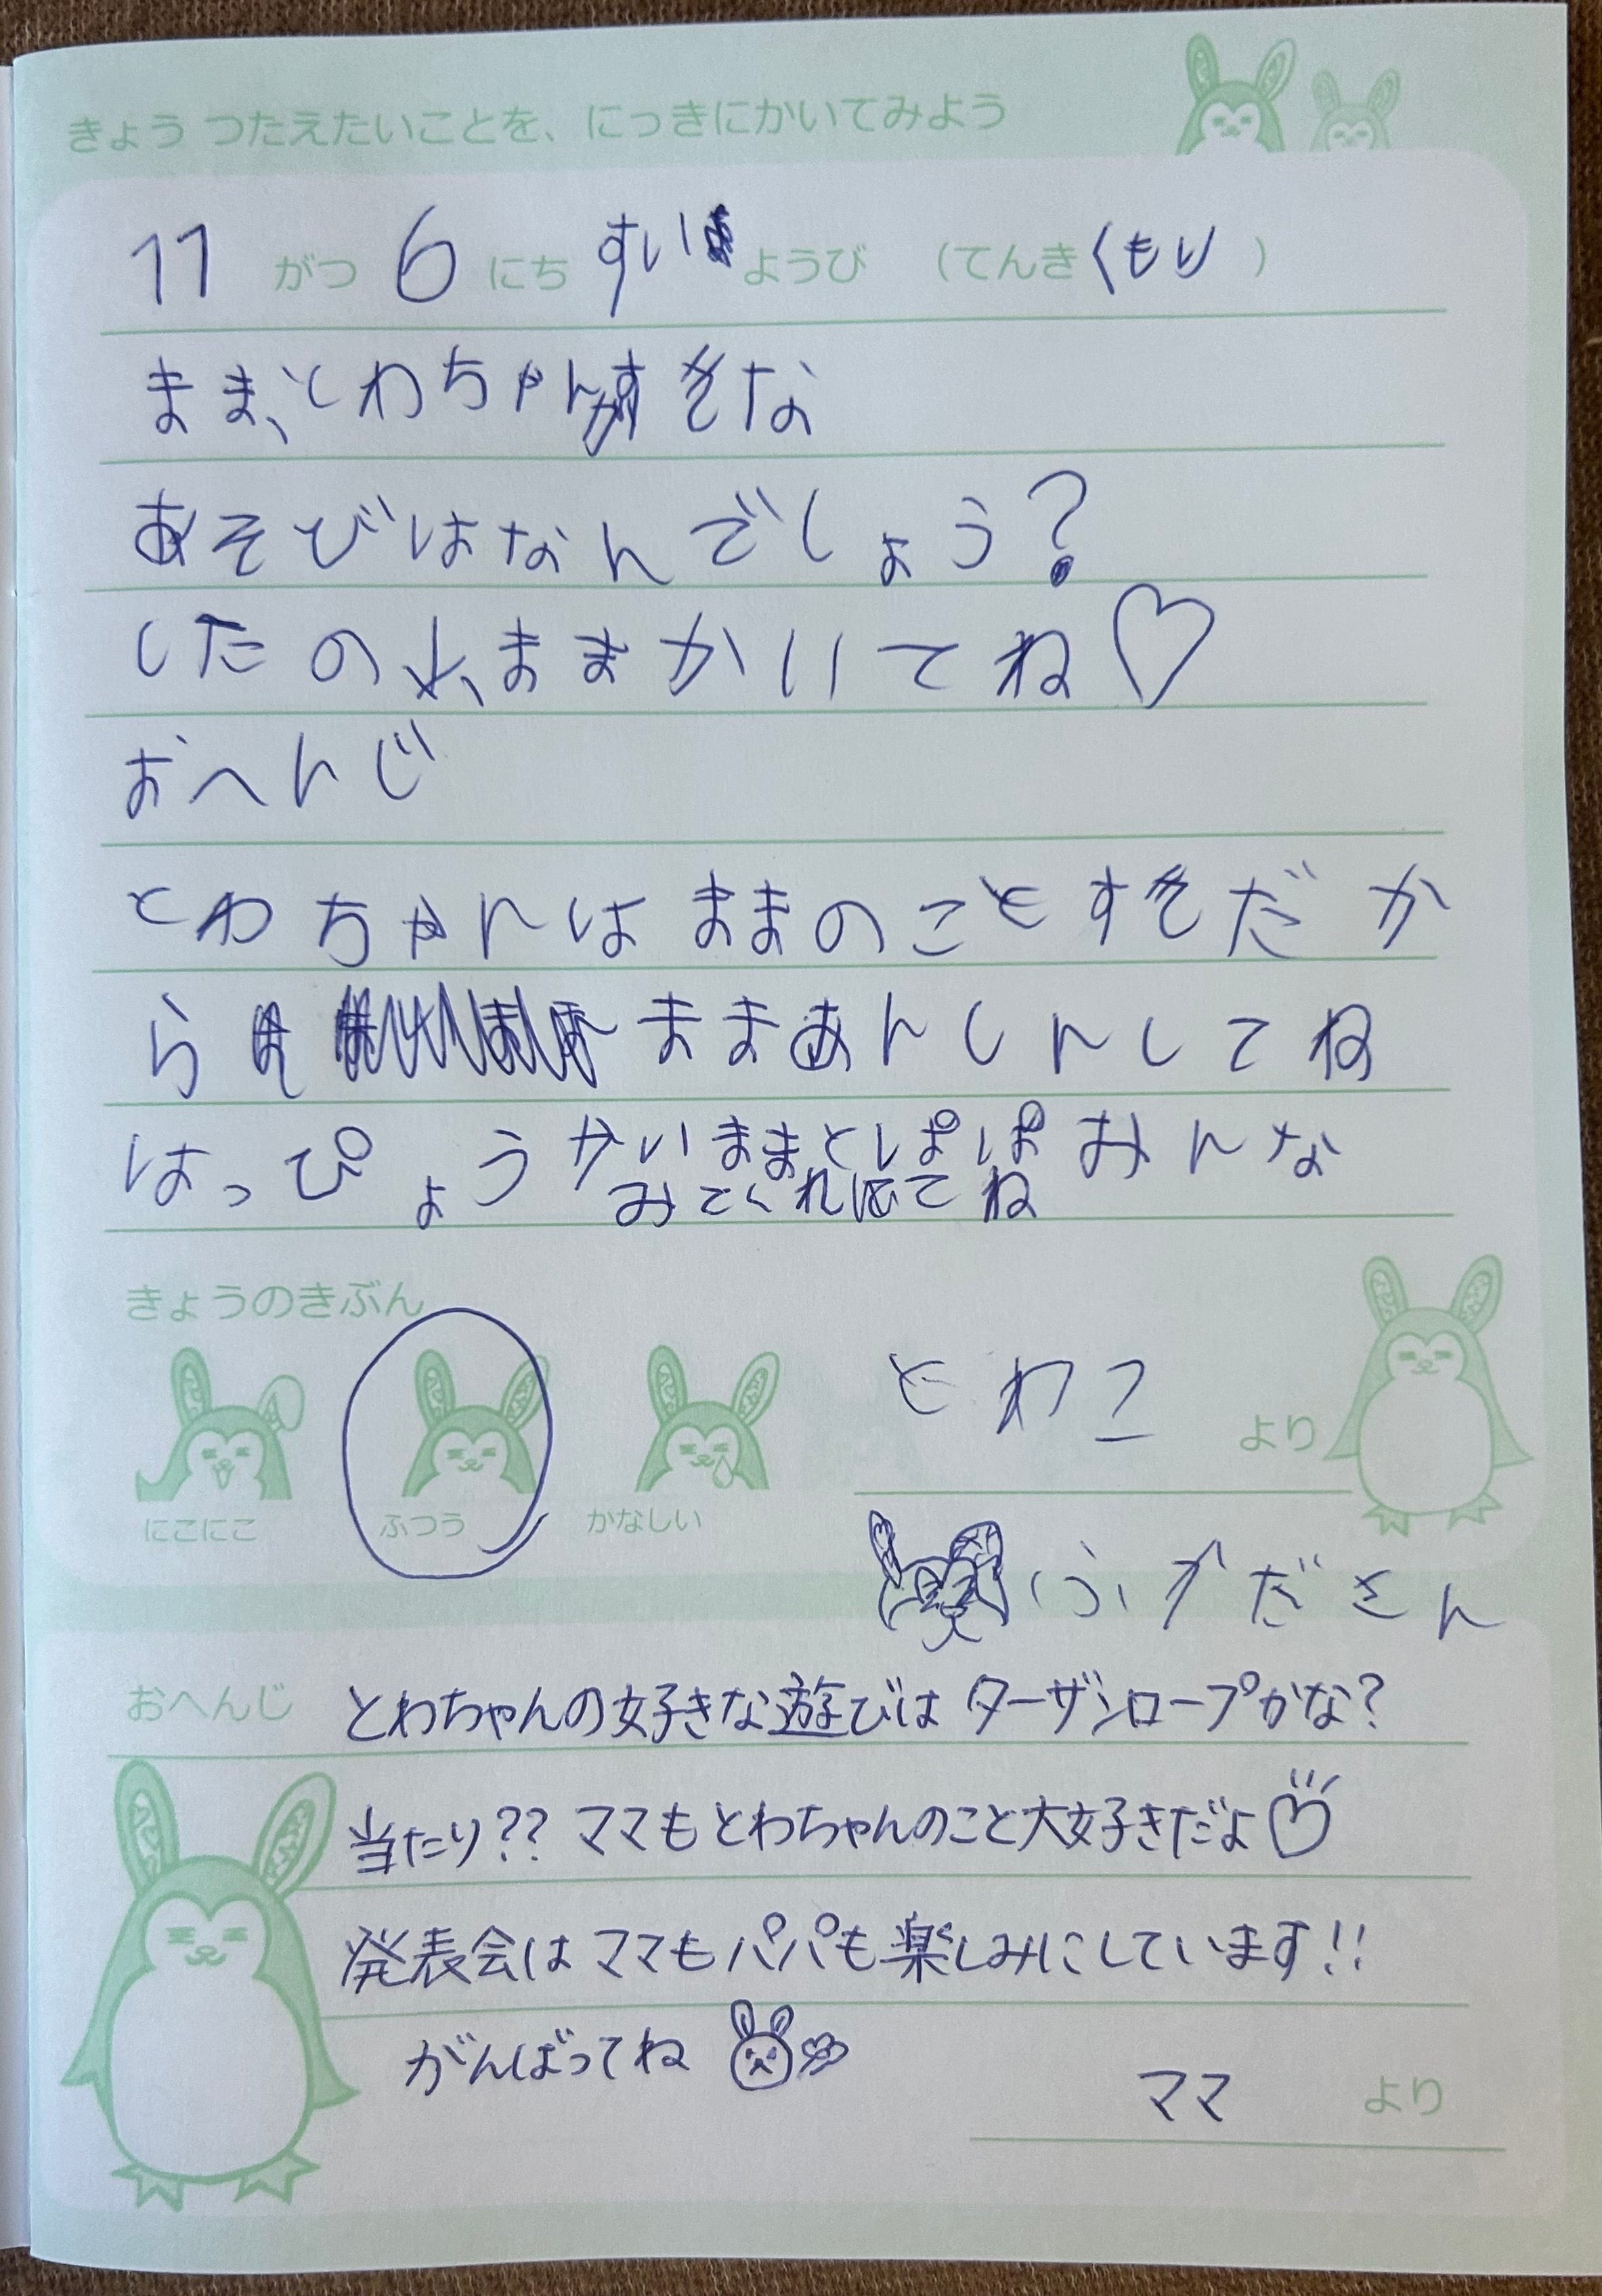 きょう つたえたいことを、にっきにかいてみよう
11 がつ 6 にち すい ようび (てんき くもり )
まま、とわちゃんがすきな
あそびはなんでしょう?
したのに、ままかいてね♡
おへんじ
とわちゃんはままのことすきだか
ら ままあんしんしてね
はっぴょうかいままとぱぱみんな
みてくれ てね
きょうのきぶん
にこにこ ふつう かなしい
とわこ より
おへんじ とわちゃんの好きな遊びは ターザンロープかな?
当たり?? ママもとわちゃんのこと大好きだよ♡
発表会は ママもパパも楽しみにしています!!
がんばってね
ママ より